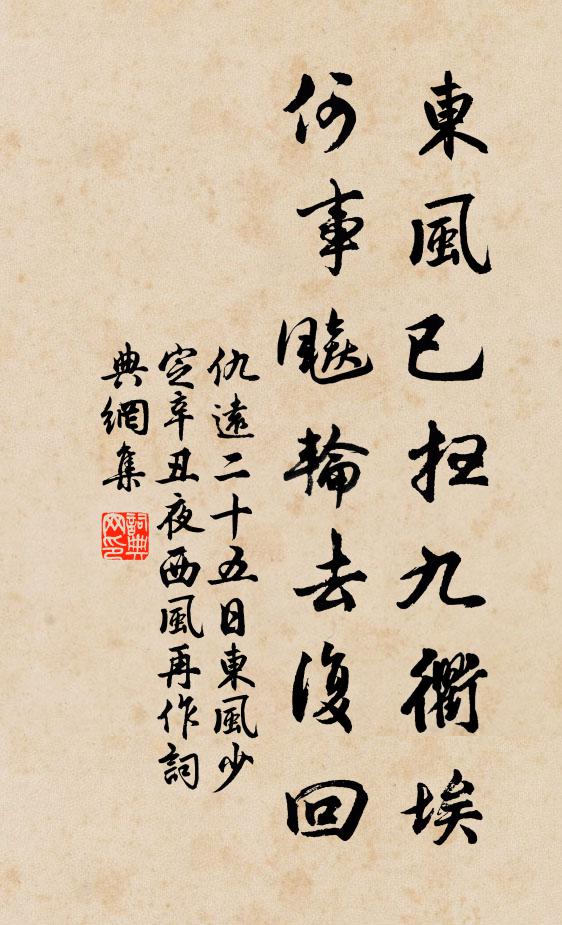 東風已扫九衢埃
何事飈輪去復回
仇遠二十五日東風少
定辛丑夜西風再作詞
典網集
詞典
网印